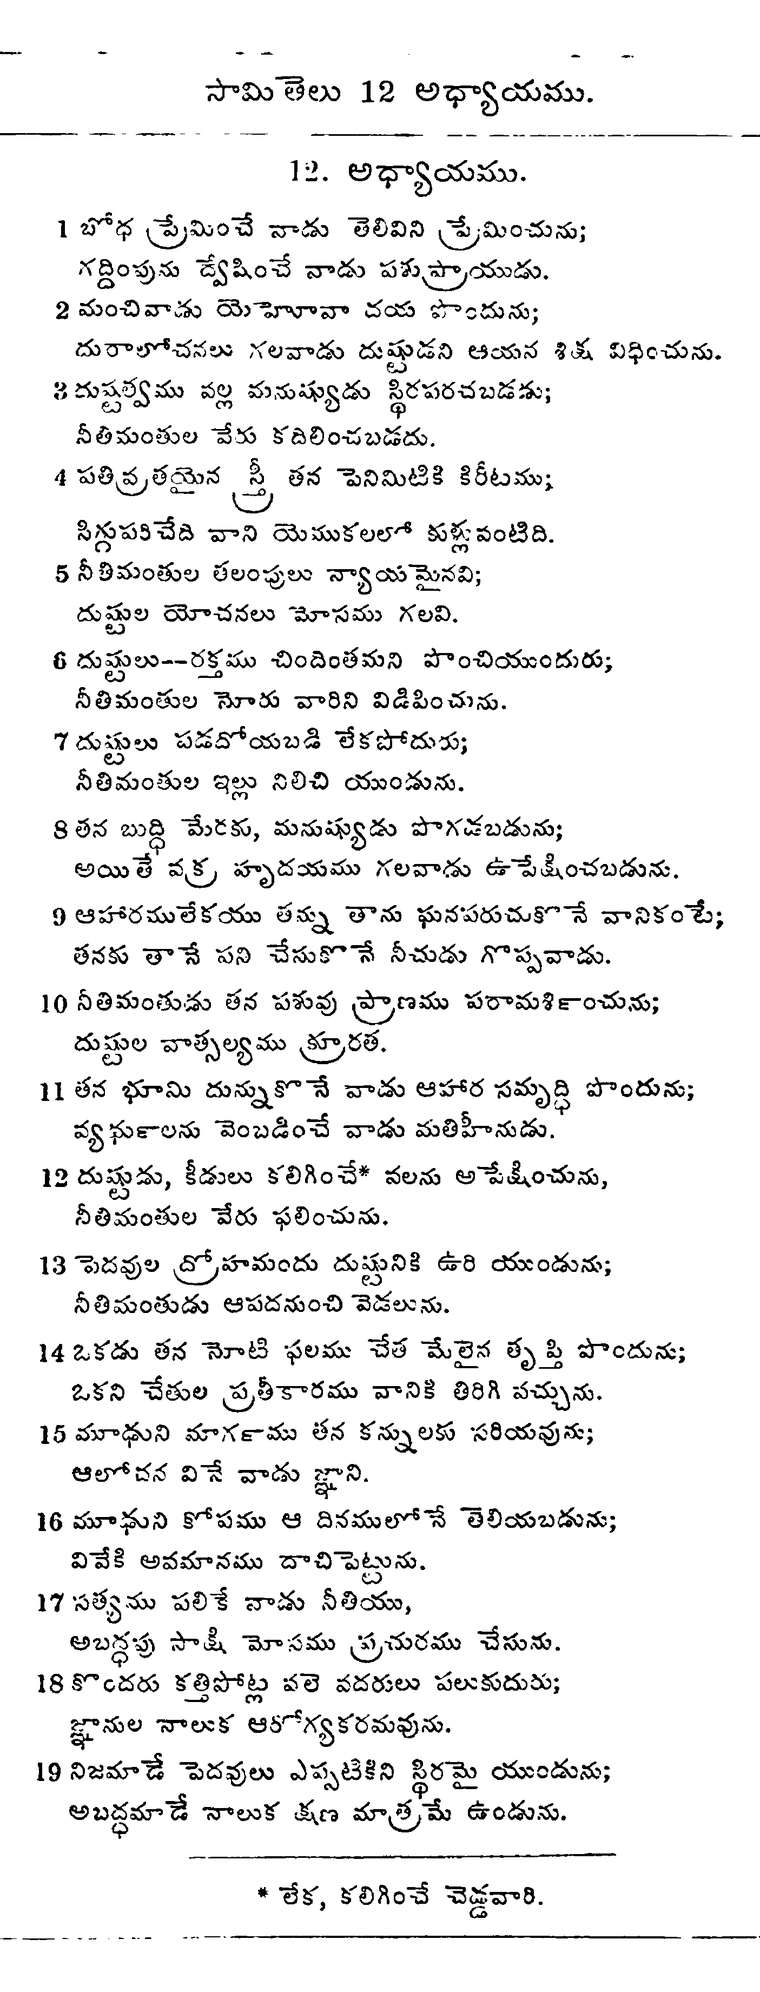 సామితెలు 12 అధ్యాయము.
12. అధ్యాయము.
1 బోధ ప్రేమించే వాడు తెలివిని ప్రేమించును;
గద్దింపును ద్వేషించే వాడు పశుప్రాయుడు.
2 మంచివాడు యెహోవా దయ పొందును;
దురాలోచనలు గలవాడు దుష్టుడని ఆయన శిక్ష విధించును.
3 దుష్టత్వము వల్ల మనుష్యుడు స్థిరపరచబడడు;
నీతిమంతుల వేరు కదిలించబడదు.
4 పతివ్రతయైన స్త్రీ తన పెనిమిటికి కిరీటము;
సిగ్గుపరిచేది వాని యెముకలలో కుళ్లువంటిది.
5 నీతిమంతుల తలంపులు న్యాయమైనవి;
దుష్టుల యోచనలు మోసము గలవి.
6 దుష్టులు--రక్తము చిందింతమని పొంచియుందురు;
నీతిమంతుల నోరు వారిని విడిపించును.
7 దుష్టులు పడదోయబడి లేకపోదురు;
నీతిమంతుల ఇల్లు నిలిచి యుండును.
8 తన బుద్ధి మేరకు, మనుష్యుడు పొగడబడును;
అయితే వక్ర హృదయము గలవాడు ఉపేక్షించబడును.
9 ఆహారములేకయు తన్ను తాను ఘనపరుచుకొనే వానికంటే;
తనకు తానే పని చేసుకొనే నీచుడు గొప్పవాడు.
10 నీతిమంతుడు తన పశువు ప్రాణము పరామశి౯ంచును;
దుష్టుల వాత్సల్యము క్రూరత.
11 తన భూమి దున్నుకొనే వాడు ఆహార సమృద్ధి పొందును;
వ్యథు౯లను వెంబడించే వాడు మతిహీనుడు.
12 దుష్టుడు, కీడులు కలిగించే* వలను అపేక్షించును,
నీతిమంతుల వేరు ఫలించును.
13 పెదవుల ద్రోహమందు దుష్టునికి ఉరి యుండును;
నీతిమంతుడు ఆపదనుంచి వెడలును.
14 ఒకడు తన నోటి ఫలము చేత మేలైన తృప్తి పొందును;
ఒకని చేతుల ప్రతీకారము వానికి తిరిగి వచ్చును.
15 మూఢుని మాగ౯ము తన కన్నులకు సరియవును;
ఆలోచన వినే వాడు జ్ఞాని.
16 మూఢుని కోపము ఆ దినములోనే తెలియబడును;
వివేకి అవమానము దాచిపెట్టును.
17 సత్యము పలికే వాడు నీతియు,
అబద్ధపు సాక్షి మోసము ప్రచురము చేసును.
18 కొందరు కత్తిపోట్ల వలె వదరులు పలుకుదురు;
జ్ఞానుల నాలుక ఆరోగ్యకరమవును.
19 నిజమాడే పెదవులు ఎప్పటికిని స్థిరమై యుండును;
అబద్ధమాడే నాలుక క్షణ మాత్రమే ఉండును.
* లేక, కలిగించే చెడ్డవారి.